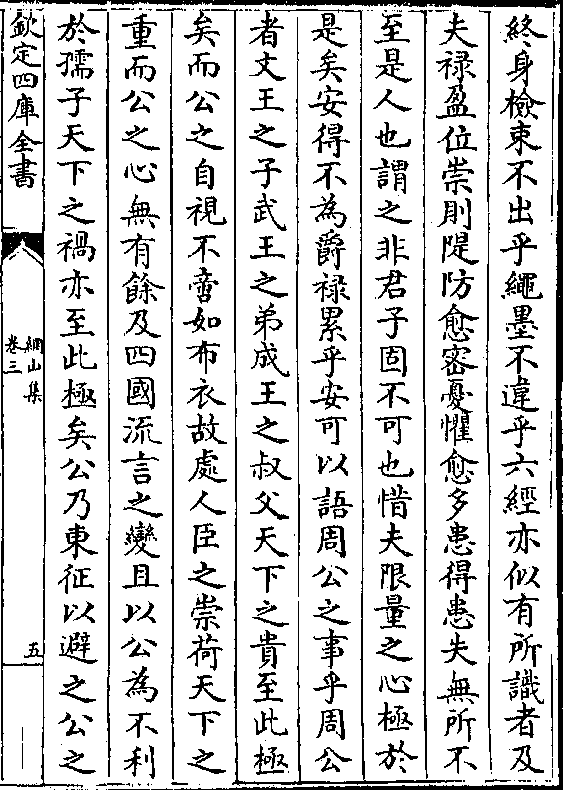 終身檢束不出乎繩墨不違乎六經亦似有所識者及
夫禄盈位崇則隄防愈密憂懼愈多患得患失無所不
至是人也謂之非君子固不可也惜夫限量之心極於
是矣安得不為爵禄累乎安可以語周公之事乎周公
者文王之子武王之弟成王之叔父天下之貴至此極
矣而公之自視不啻如布衣故處人臣之崇荷天下之
重而公之心無有餘及四國流言之變且以公為不利
於孺子天下之禍亦至此極矣公乃東征以避之公之
欽定四庫全書
網山集
卷三
五